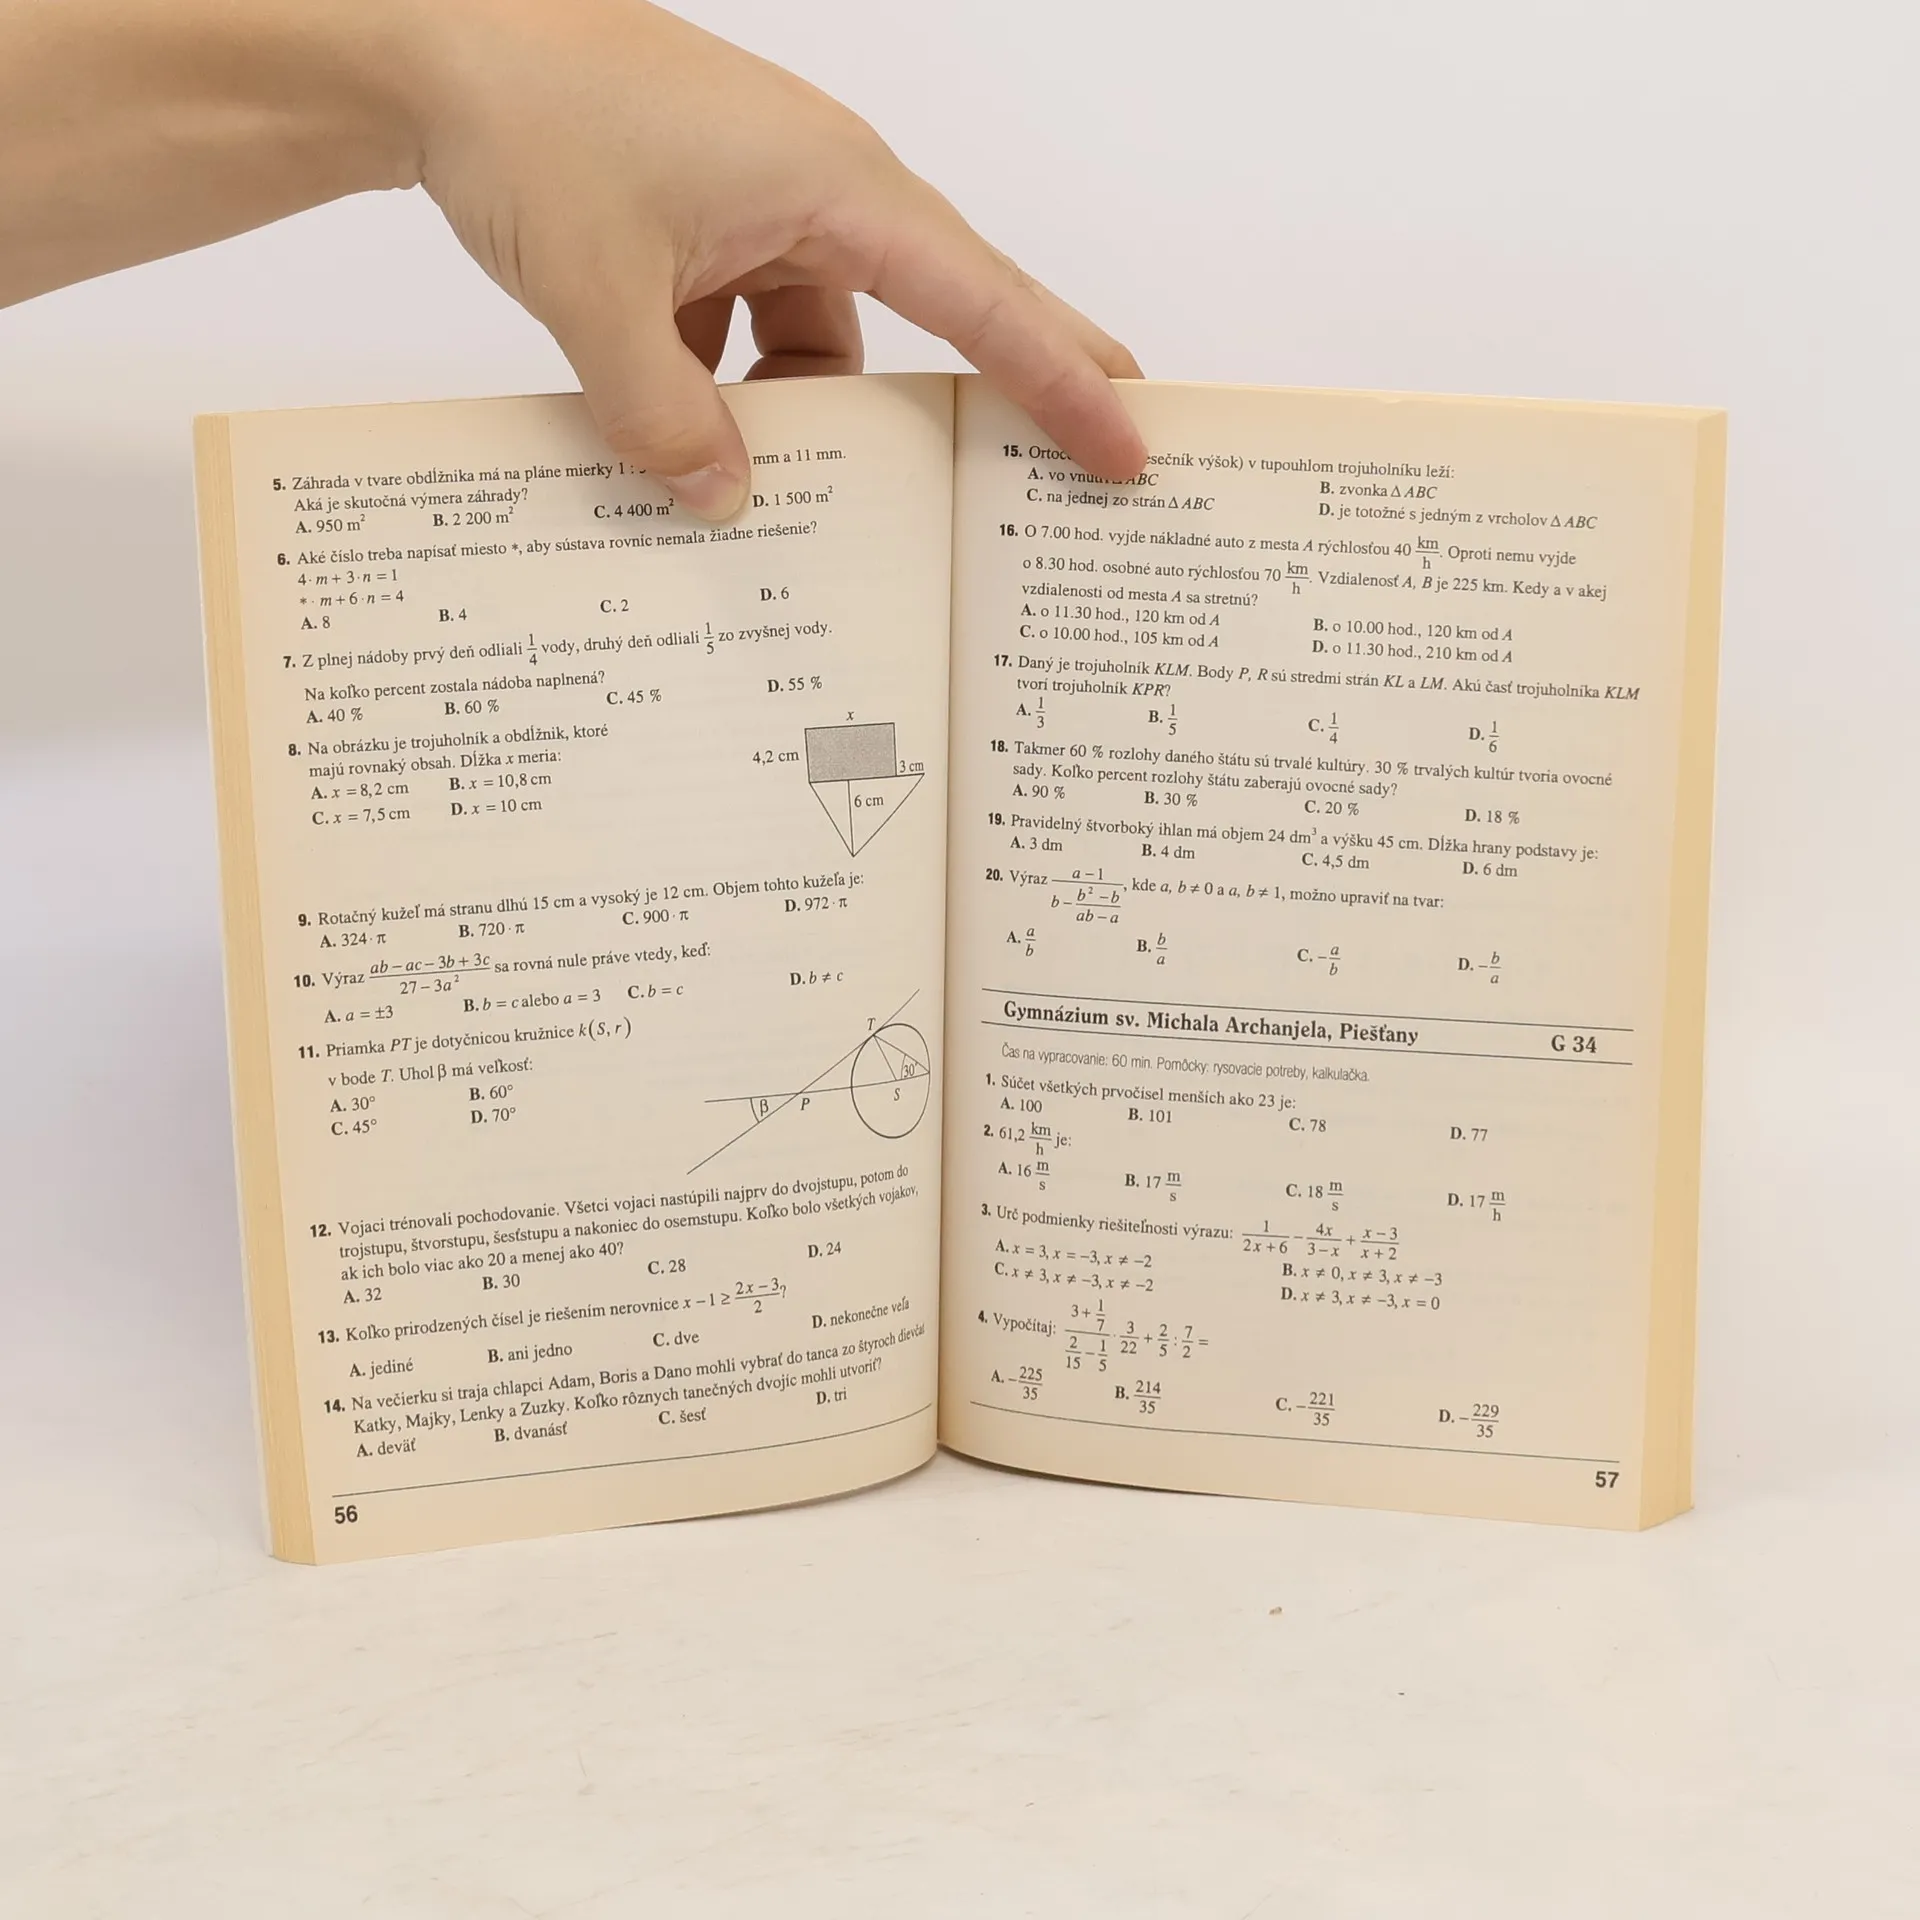 5. Záhrada v tvare obdĺžnika má na pláne mierky 1 : mm a 11 mm.
Aká je skutočná výmera záhrady?
A. 950 m² B. 2 200 m² C. 4 400 m² D. 1 500 m²
6. Aké číslo treba napísať miesto *, aby sústava rovníc nemala žiadne riešenie?
4 · m + 3 · n = 1
* · m + 6 · n = 4
A. 8 B. 4 C. 2 D. 6
7. Z plnej nádoby prvý deň odliali 1/4 vody, druhý deň odliali 1/5 zo zvyšnej vody.
Na koľko percent zostala nádoba naplnená?
A. 40 % B. 60 % C. 45 % D. 55 %
8. Na obrázku je trojuholník a obdĺžnik, ktoré
majú rovnaký obsah. Dĺžka x meria:
A. x = 8,2 cm B. x = 10,8 cm
C. x = 7,5 cm D. x = 10 cm
x
4,2 cm
3 cm
6 cm
9. Rotačný kužeľ má stranu dlhú 15 cm a vysoký je 12 cm. Objem tohto kužeľa je:
A. 324 · π B. 720 · π C. 900 · π D. 972 · π
10. Výraz (ab – ac – 3b + 3c)/(27 – 3a²) sa rovná nule práve vtedy, keď:
A. a = ±3 B. b = c alebo a = 3 C. b = c D. b ≠ c
11. Priamka PT je dotyčnicou kružnice k(S, r)
v bode T. Uhol β má veľkosť:
A. 30° B. 60°
C. 45° D. 70°
T
30°
S
β P
12. Vojaci trénovali pochodovanie. Všetci vojaci nastúpili najprv do dvojstupu, potom do
trojstupu, štvorstupu, šesťstupu a nakoniec do osemstupu. Koľko bolo všetkých vojakov,
ak ich bolo viac ako 20 a menej ako 40?
A. 32 B. 30 C. 28 D. 24
13. Koľko prirodzených čísel je riešením nerovnice x – 1 ≥ (2x – 3)/2?
A. jediné B. ani jedno C. dve D. nekonečne veľa
14. Na večierku si traja chlapci Adam, Boris a Dano mohli vybrať do tanca zo štyroch dievčat
Katky, Majky, Lenky a Zuzky. Koľko rôznych tanečných dvojíc mohli utvoriť?
A. deväť B. dvanásť C. šesť D. tri
56
15. výšok) v tupouhlom trojuholníku leží:
A. vo ABC B. zvonka Δ ABC
C. na jednej zo strán Δ ABC D. je totožné s jedným z vrcholov Δ ABC
16. O 7.00 hod. vyjde nákladné auto z mesta A rýchlosťou 40 km/h. Oproti nemu vyjde
o 8.30 hod. osobné auto rýchlosťou 70 km/h. Vzdialenosť A, B je 225 km. Kedy a v akej
vzdialenosti od mesta A sa stretnú?
A. o 11.30 hod., 120 km od A B. o 10.00 hod., 120 km od A
C. o 10.00 hod., 105 km od A D. o 11.30 hod., 210 km od A
17. Daný je trojuholník KLM. Body P, R sú stredmi strán KL a LM. Akú časť trojuholníka KLM
tvorí trojuholník KPR?
A. 1/3 B. 1/5 C. 1/4 D. 1/6
18. Takmer 60 % rozlohy daného štátu sú trvalé kultúry. 30 % trvalých kultúr tvoria ovocné
sady. Koľko percent rozlohy štátu zaberajú ovocné sady?
A. 90 % B. 30 % C. 20 % D. 18 %
19. Pravidelný štvorboký ihlan má objem 24 dm³ a výšku 45 cm. Dĺžka hrany podstavy je:
A. 3 dm B. 4 dm C. 4,5 dm D. 6 dm
20. Výraz (a – 1)/(b – (b² – b)/(ab – a)), kde a, b ≠ 0 a a, b ≠ 1, možno upraviť na tvar:
A. a/b B. b/a C. –a/b D. –b/a
Gymnázium sv. Michala Archanjela, Piešťany G 34
Čas na vypracovanie: 60 min. Pomôcky: rysovacie potreby, kalkulačka.
1. Súčet všetkých prvočísel menších ako 23 je:
A. 100 B. 101 C. 78 D. 77
2. 61,2 km/h je:
A. 16 m/s B. 17 m/s C. 18 m/s D. 17 m/h
3. Urč podmienky riešiteľnosti výrazu: 1/(2x + 6) – 4x/(3 – x) + (x – 3)/(x + 2)
A. x = 3, x = –3, x ≠ –2 B. x ≠ 0, x ≠ 3, x ≠ –3
C. x ≠ 3, x ≠ –3, x ≠ –2 D. x ≠ 3, x ≠ –3, x = 0
4. Vypočítaj: (3 + 1/7)/(2/15 – 1/5) · 3/22 + 2/5 : 7/2 =
A. –225/35 B. 214/35 C. –221/35 D. –229/35
57